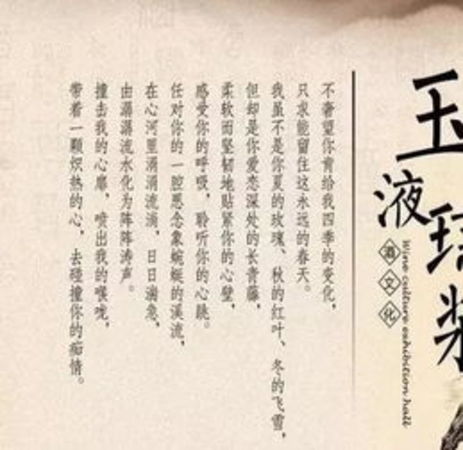 玉液琼浆
酒文化
Wine culture exhibition hall
不奢望你肯给我四季的变化，
只求能留住这永远的春天。
我虽不是你夏的玫瑰、秋的红叶、冬的飞雪，
但却是你爱恋深处的长青藤，
柔软而坚韧地贴紧你的心壁，
感受你的呼吸，聆听你的心跳。
任对你的一腔思念象蜿蜒的溪流，
在心河里涓涓流淌，日日湍急，
由潺潺流水化为阵阵涛声。
撞击我的心扉，喷出我的喉咙，
带着一颗炽热的心，去碰撞你的痴情。